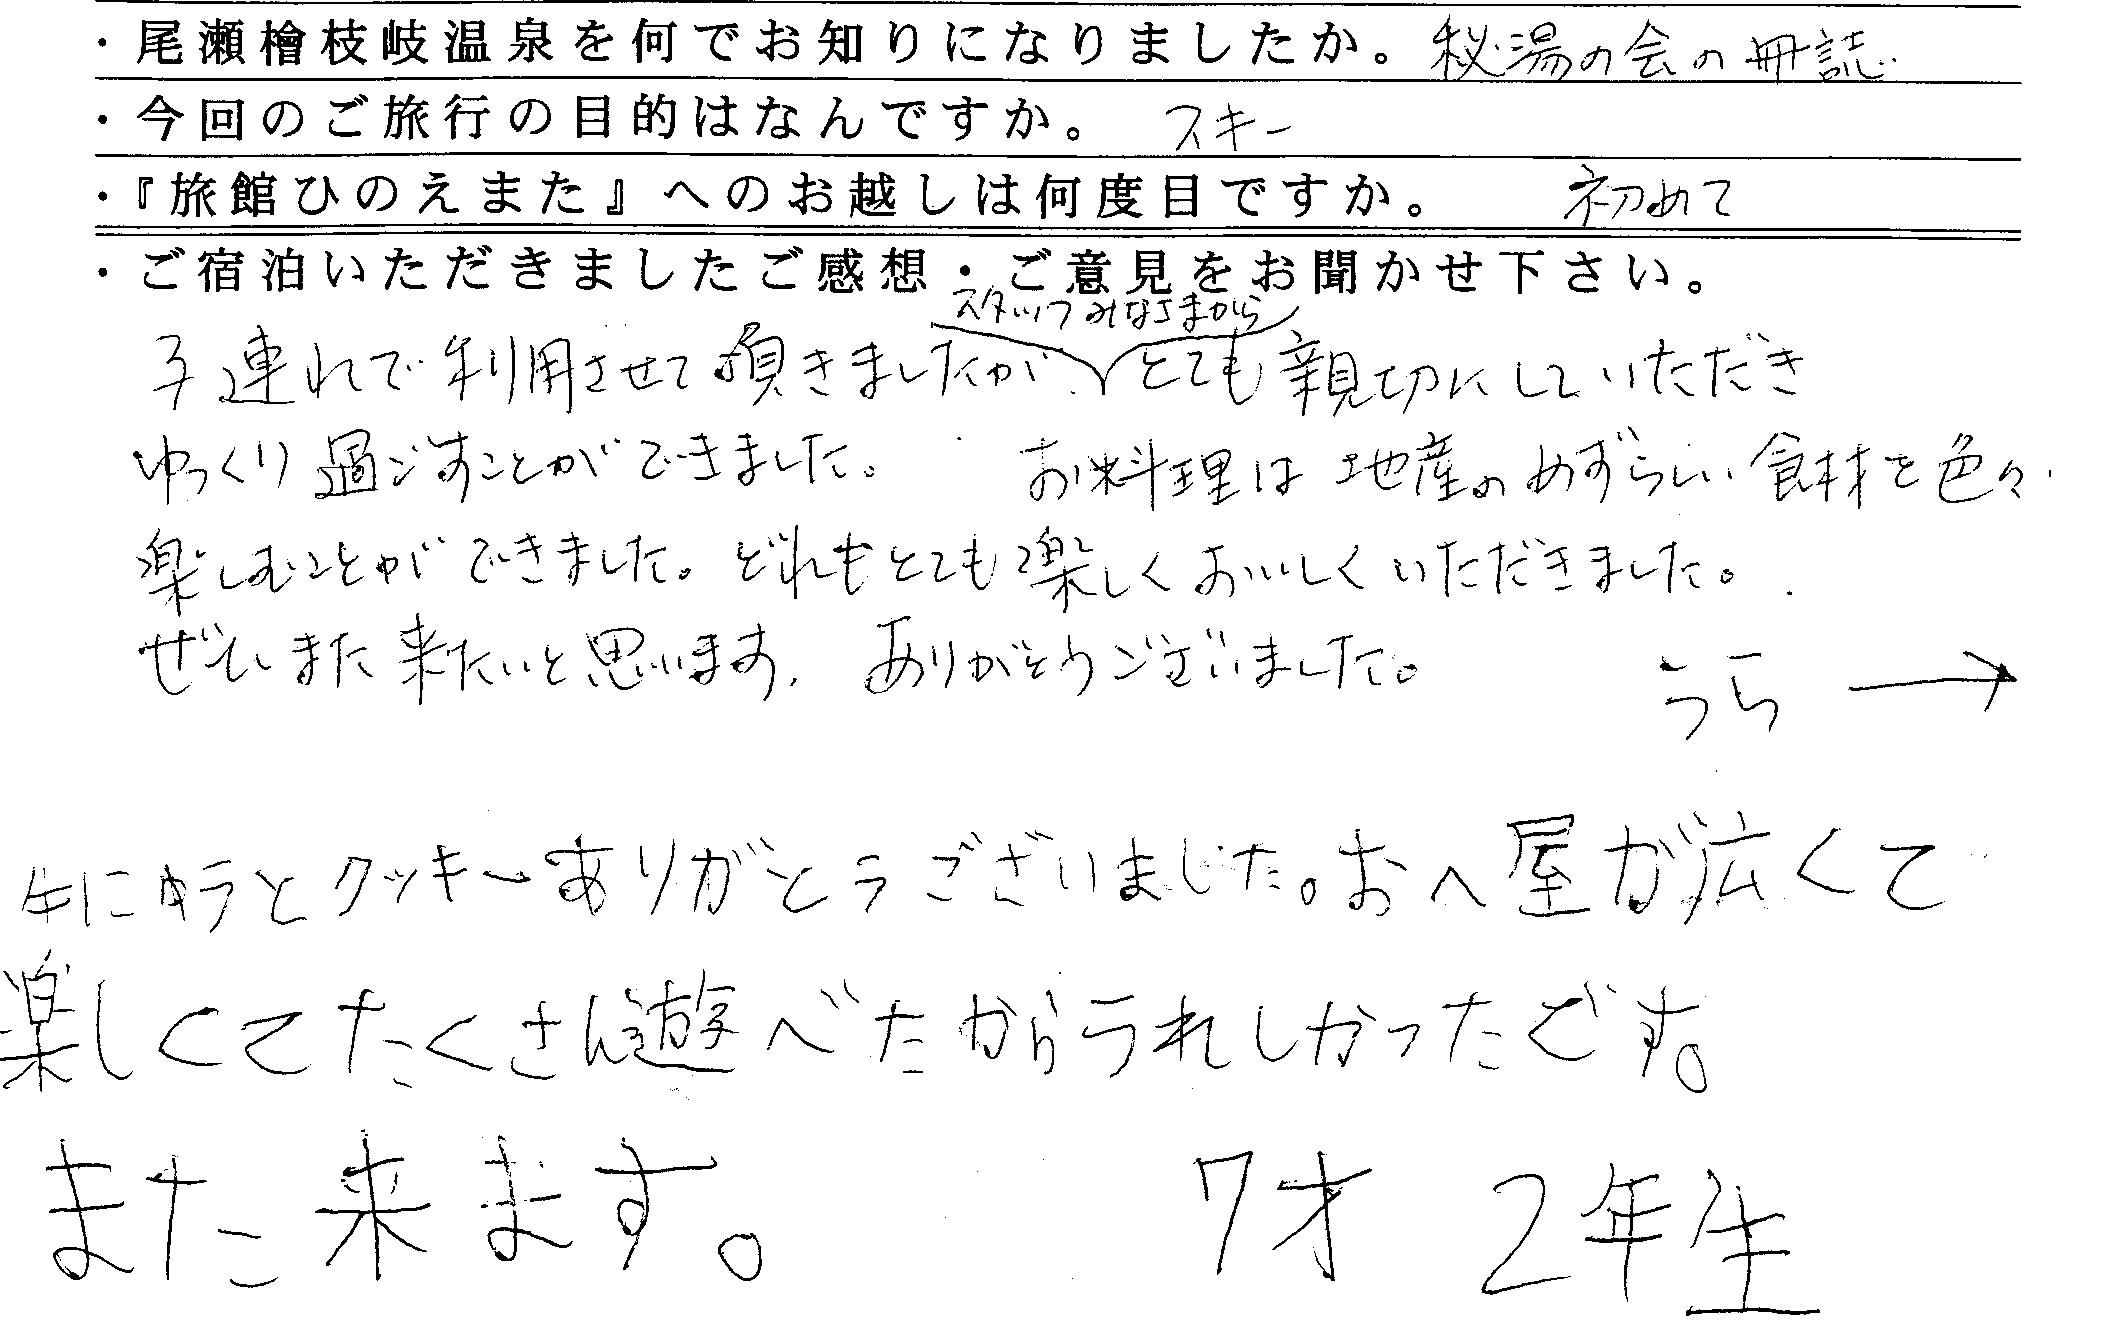 ・尾瀬檜枝岐温泉を何でお知りになりましたか。 秘湯の会の冊誌
・今回のご旅行の目的はなんですか。 スキー
・『旅館ひのえまた』へのお越しは何度目ですか。 初めて
・ご宿泊いただきましたご感想・ご意見をお聞かせ下さい。
スタッフみなさまから
子連れで利用させて頂きましたが、とても親切にしていただき
ゆっくり過ごすことができました。 お料理は地産のめずらしい食材を色々
楽しむことができました。どれもとても楽しくおいしくいただきました。
ぜひまた来たいと思います。 ありがとうございました。
うら →
とクッキーありがとうございました。おへ屋が広くて
楽しくてたくさん遊べたからうれしかったです。
また来ます。 7才 2年生